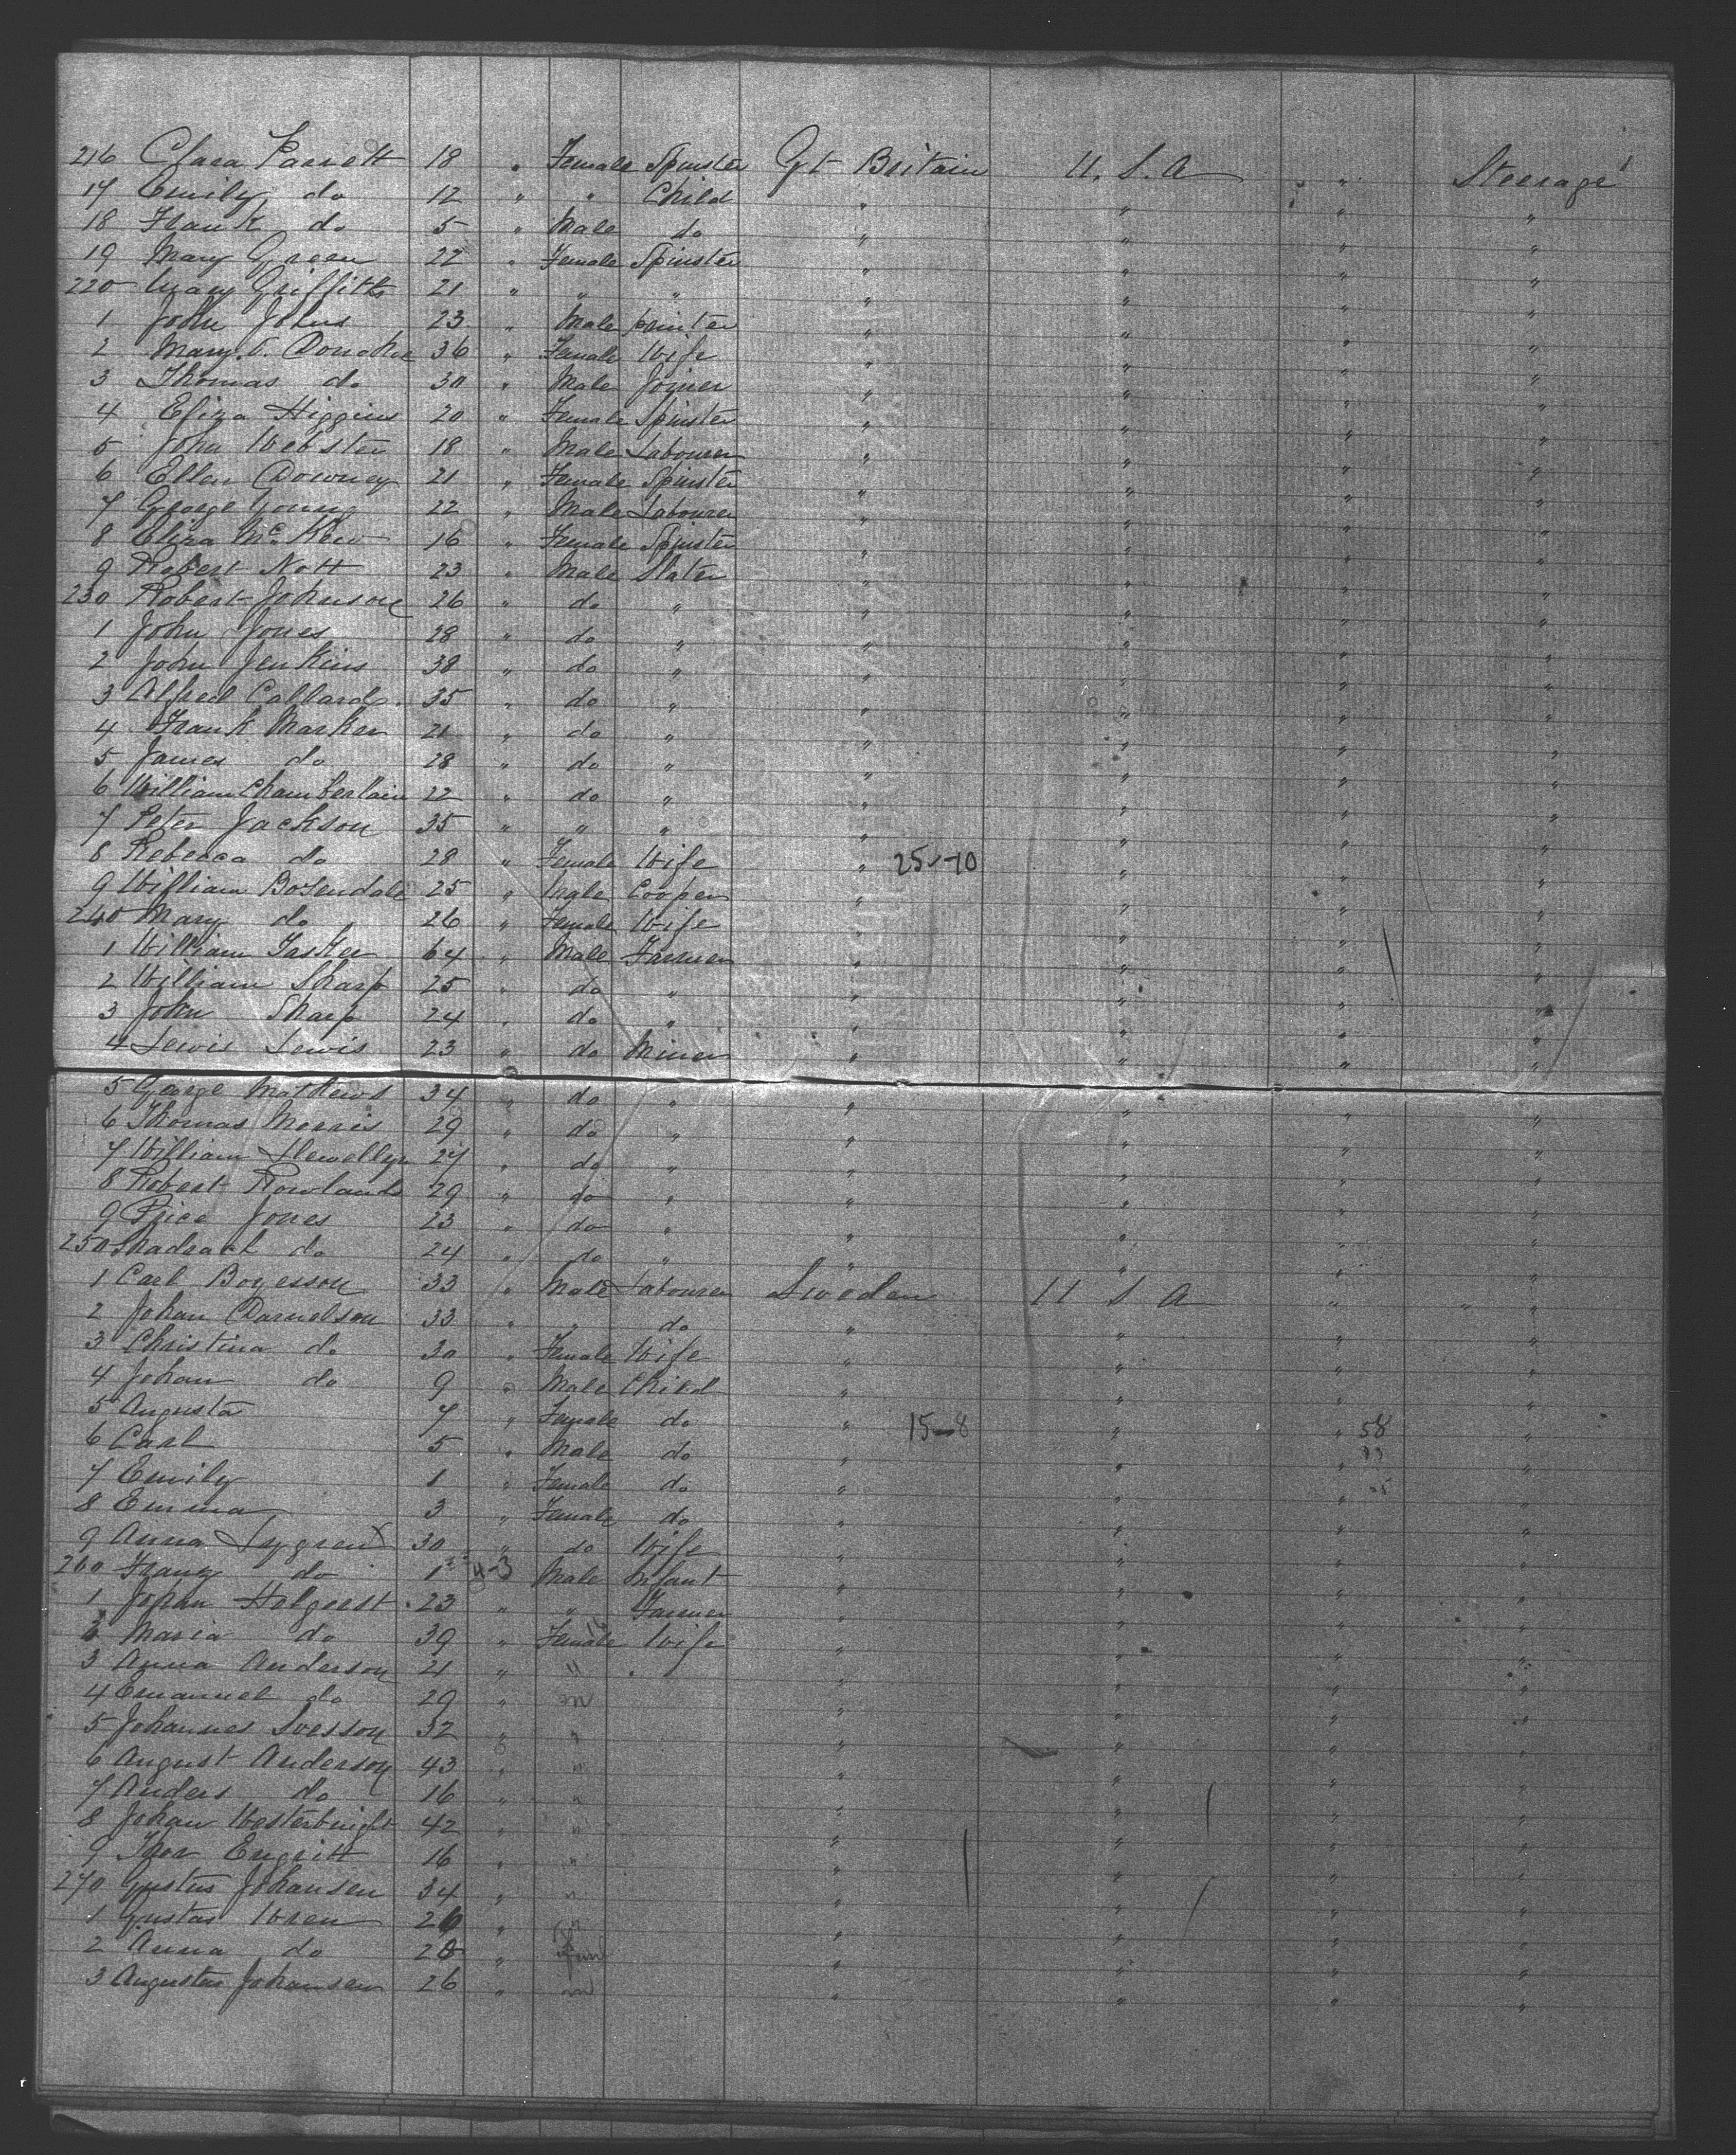 216 Clara Parrett 18 " Female Spinster Gt Britain U.S.A " Steerage
17 Emily do 12 " " Child " " " "
18 Frank do 5 " Male do " " " "
19 Mary Green 22 " Female Spinster " " " "
220 Mary Griffiths 21 " " " " " " "
1 John Johns 23 " Male printer " " " "
2 Mary T. Donohoe 36 " Female Wife " " " "
3 Thomas do 30 " Male Joiner " " " "
4 Eliza Higgins 20 " Female Spinster " " " "
5 John Webster 18 " Male Labourer " " " "
6 Ellen Downey 21 " Female Spinster " " " "
7 George Young 22 " Male Labourer " " " "
8 Eliza McKew 16 " Female Spinster " " " "
9 Robert Nott 23 " Male Slater " " " "
230 Robert Johnson 26 " do " " " " "
1 John Jones 28 " do " " " " "
2 John Jenkins 38 " do " " " " "
3 Alfred Collard 35 " do " " " " "
4 Frank Marker 21 " do " " " " "
5 James do 28 " do " " " " "
6 William Chamberlain 22 " do " " " " "
7 Peter Jackson 35 " " " " " " "
8 Rebecca do 28 " Female Wife " 25-10 " " "
9 William Bosendale 25 " Male Cooper " " " "
240 Mary do 26 " Female Wife " " " "
1 William Tasker 64 " Male Farmer " " " "
2 William Sharp 25 " do " " " " "
3 John Sharp 24 " do " " " " "
4 Lewis Lewis 23 " do Miner " " " "
5 George Mathews 34 " do " " " " "
6 Thomas Morris 29 " do " " " " "
7 William Llewellyn 27 " do " " " " "
8 Robert Rowlands 29 " do " " " " "
9 Price Jones 23 " do " " " " "
250 Shadrach do 24 " do " " " " "
1 Carl Boyesson 33 " Male Labourer Sweden U S A " " "
2 Johan Danielson 33 " " do " " " "
3 Christina do 30 " Female Wife " " " "
4 Johan do 9 " Male Child " " " "
5 Augusta 7 " Female do " 15-8 " " 58 "
6 Carl 5 " Male do " " " "
7 Emily 1 " Female do " " " "
8 Emma 3 " Female do " " " "
9 Anna Lygren 30 " do Wife " " " "
260 Franz do 1 4-3 Male Infant " " " "
1 Johan Holqvist 23 " " Farmer " " " "
2 Maria do 39 " Female Wife " " " "
3 Anna Anderson 21 " " " " " "
4 Emanuel do 29 " m " " " "
5 Johannes Svesson 32 " " " " " "
6 August Anderson 43 " " " " " "
7 Anders do 16 " " " " " "
8 Johan 42 " " " " " "
9 16 " " " " " "
270 Gustus Johansen 34 " " " " " "
1 Gustav Wren 26 " " " " " "
2 Anna do 20 " Fem " " " "
3 Augustus Johansen 26 " m " " " "